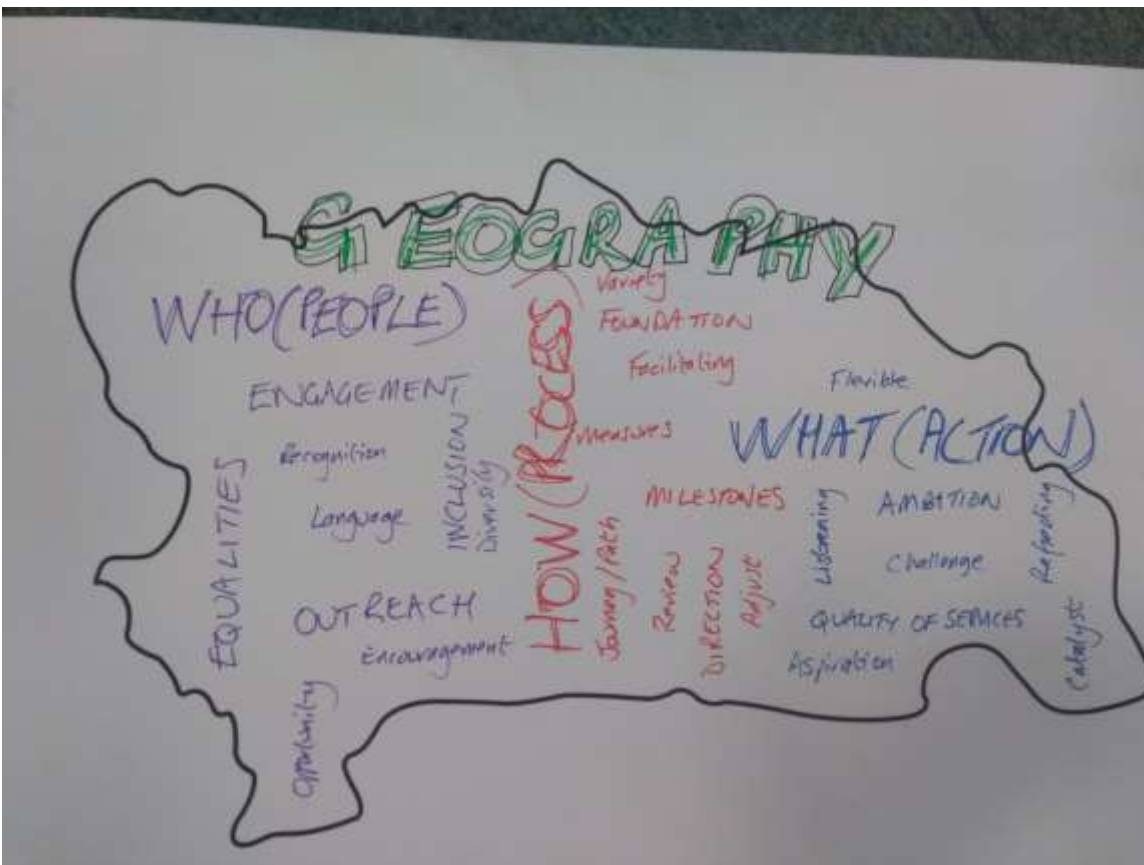 GEOGRAPHY
WHO (PEOPLE)
ENGAGEMENT
Recognition
Language
INCLUSION
Diversity
EQUALITIES
OUTREACH
Encouragement
Opportunity
HOW (PROCESS)
Variety
FOUNDATION
Facilitating
Measures
MILESTONES
Journey/Path
Review
DIRECTION
Adjust
Flexible
WHAT (ACTION)
Listening
AMBITION
Challenge
QUALITY OF SERVICES
Aspiration
Catalyst